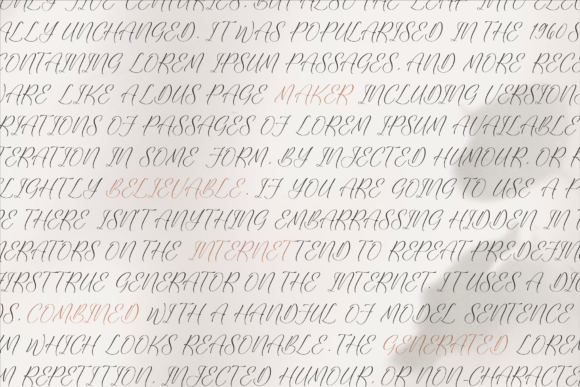 ONLY FIVE CENTURIES. BUT ALSO THE LEAP INTO ELEC
ALLY UNCHANGED. IT WAS POPULARISED IN THE 1960S
CONTAINING LOREM IPSUM PASSAGES. AND MORE RECE
ARE LIKE ALDUS PAGE MAKER INCLUDING VERSION
RIATIONS OF PASSAGES OF LOREM IPSUM AVAILABLE
TERATION IN SOME FORM. BY INJECTED HUMOUR. OR R
LIGHTLY BELIEVABLE. IF YOU ARE GOING TO USE A P
E THERE ISN'T ANYTHING EMBARRASSING HIDDEN IN T
ERATORS ON THE INTERNET TEND TO REPEAT PREDEFIN
FIRST TRUE GENERATOR ON THE INTERNET. IT USES A DIC
S. COMBINED WITH A HANDFUL OF MODEL SENTENCE
M WHICH LOOKS REASONABLE. THE GENERATED LOREM
M REPETITION. INJECTED HUMOUR. OR NON-CHARACTE